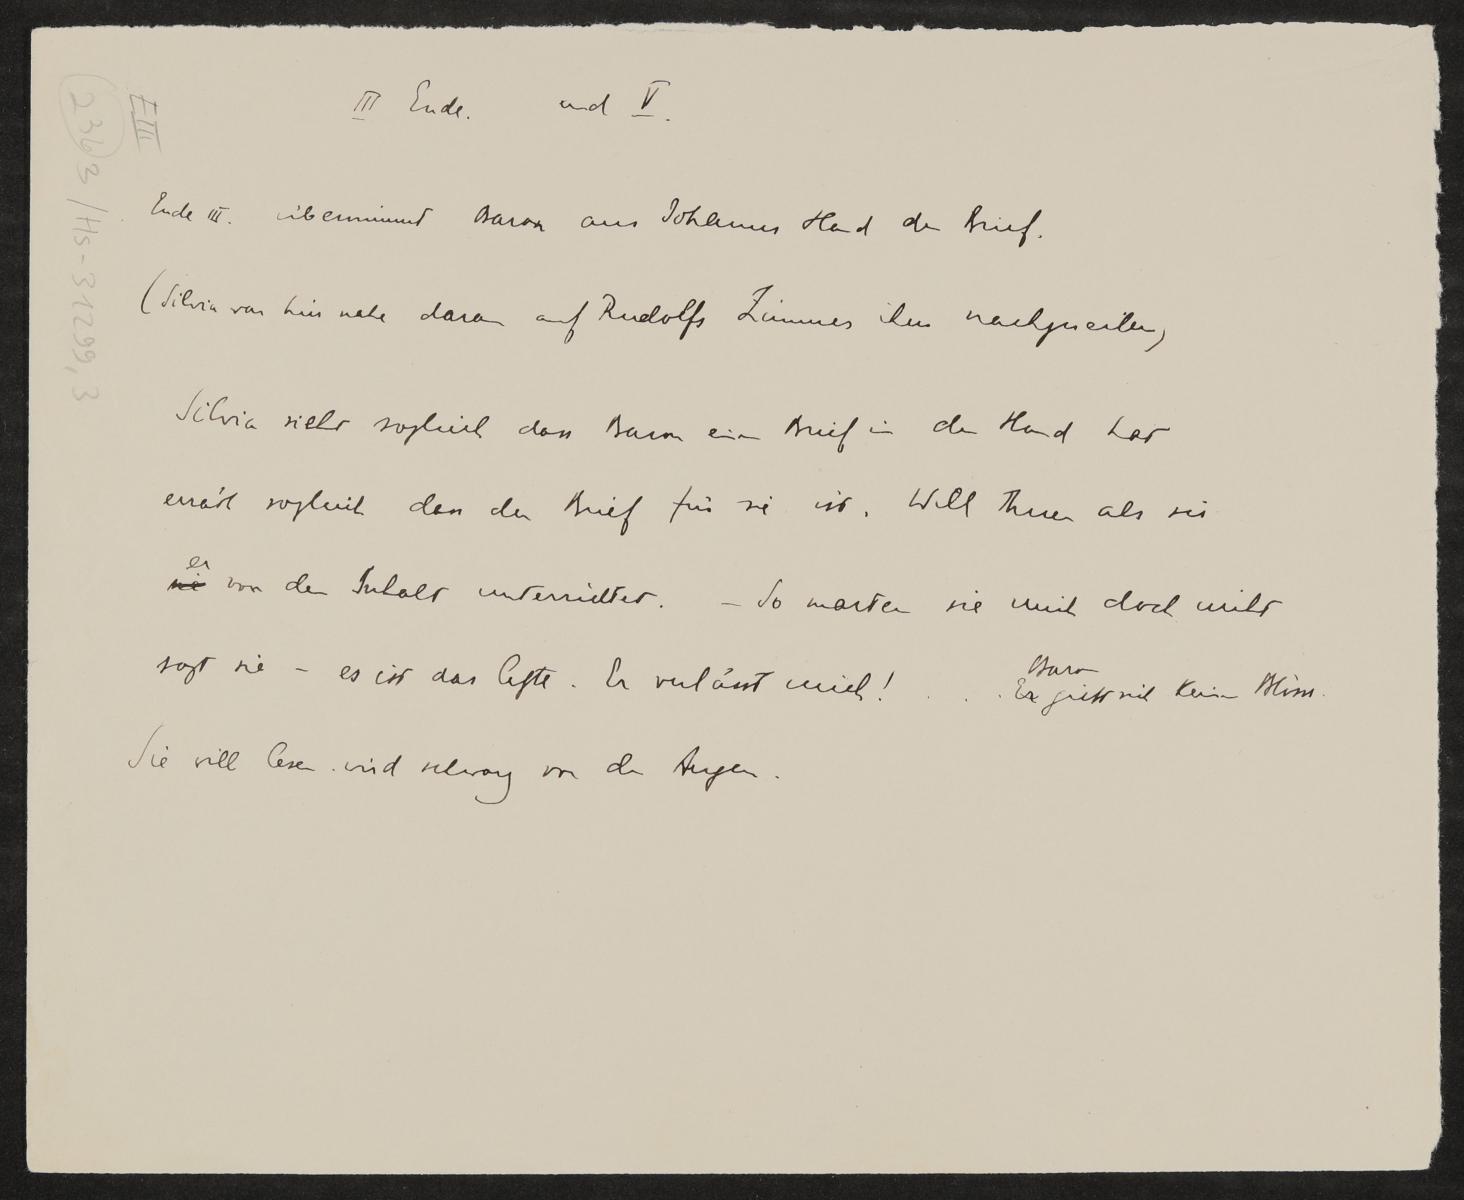 III Ende. und V.
E III
236 B / Hs-31299,3
Ende III. übernimmt Baron aus Johannes Hand den Brief.
(Silvia war hier nahe daran auf Rudolfs Zimmer ihm nachzueilen)
Silvia sieht sogleich dass Baron einen Brief in der Hand hat
errät sogleich dass der Brief für sie ist. Will Thun als sei
er
sie von dem Inhalt unterrichtet. – So martern sie mich doch nicht
sagt sie – es ist das letzte. Er verlässt mich! . . .
Baron
Er giebt sich keine Blösse.
Sie will lesen. wird schwarz vor den Augen.